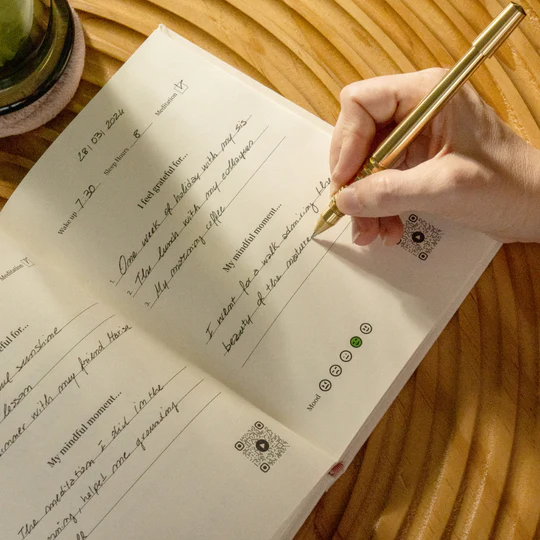 28/03/2024
Wake up 7.30 Sleep Hours 8 Meditation
I feel grateful for...
1. One week of holiday with my sis
2. The lunch with my colleagues
3. My morning coffee
My mindful moment...
I went for a walk admiring the
beauty of the nature
Mood
Meditation
ful for...
sunshine
lesson
with my friend Maria
My mindful moment...
The meditation I did in the
helped me grounding